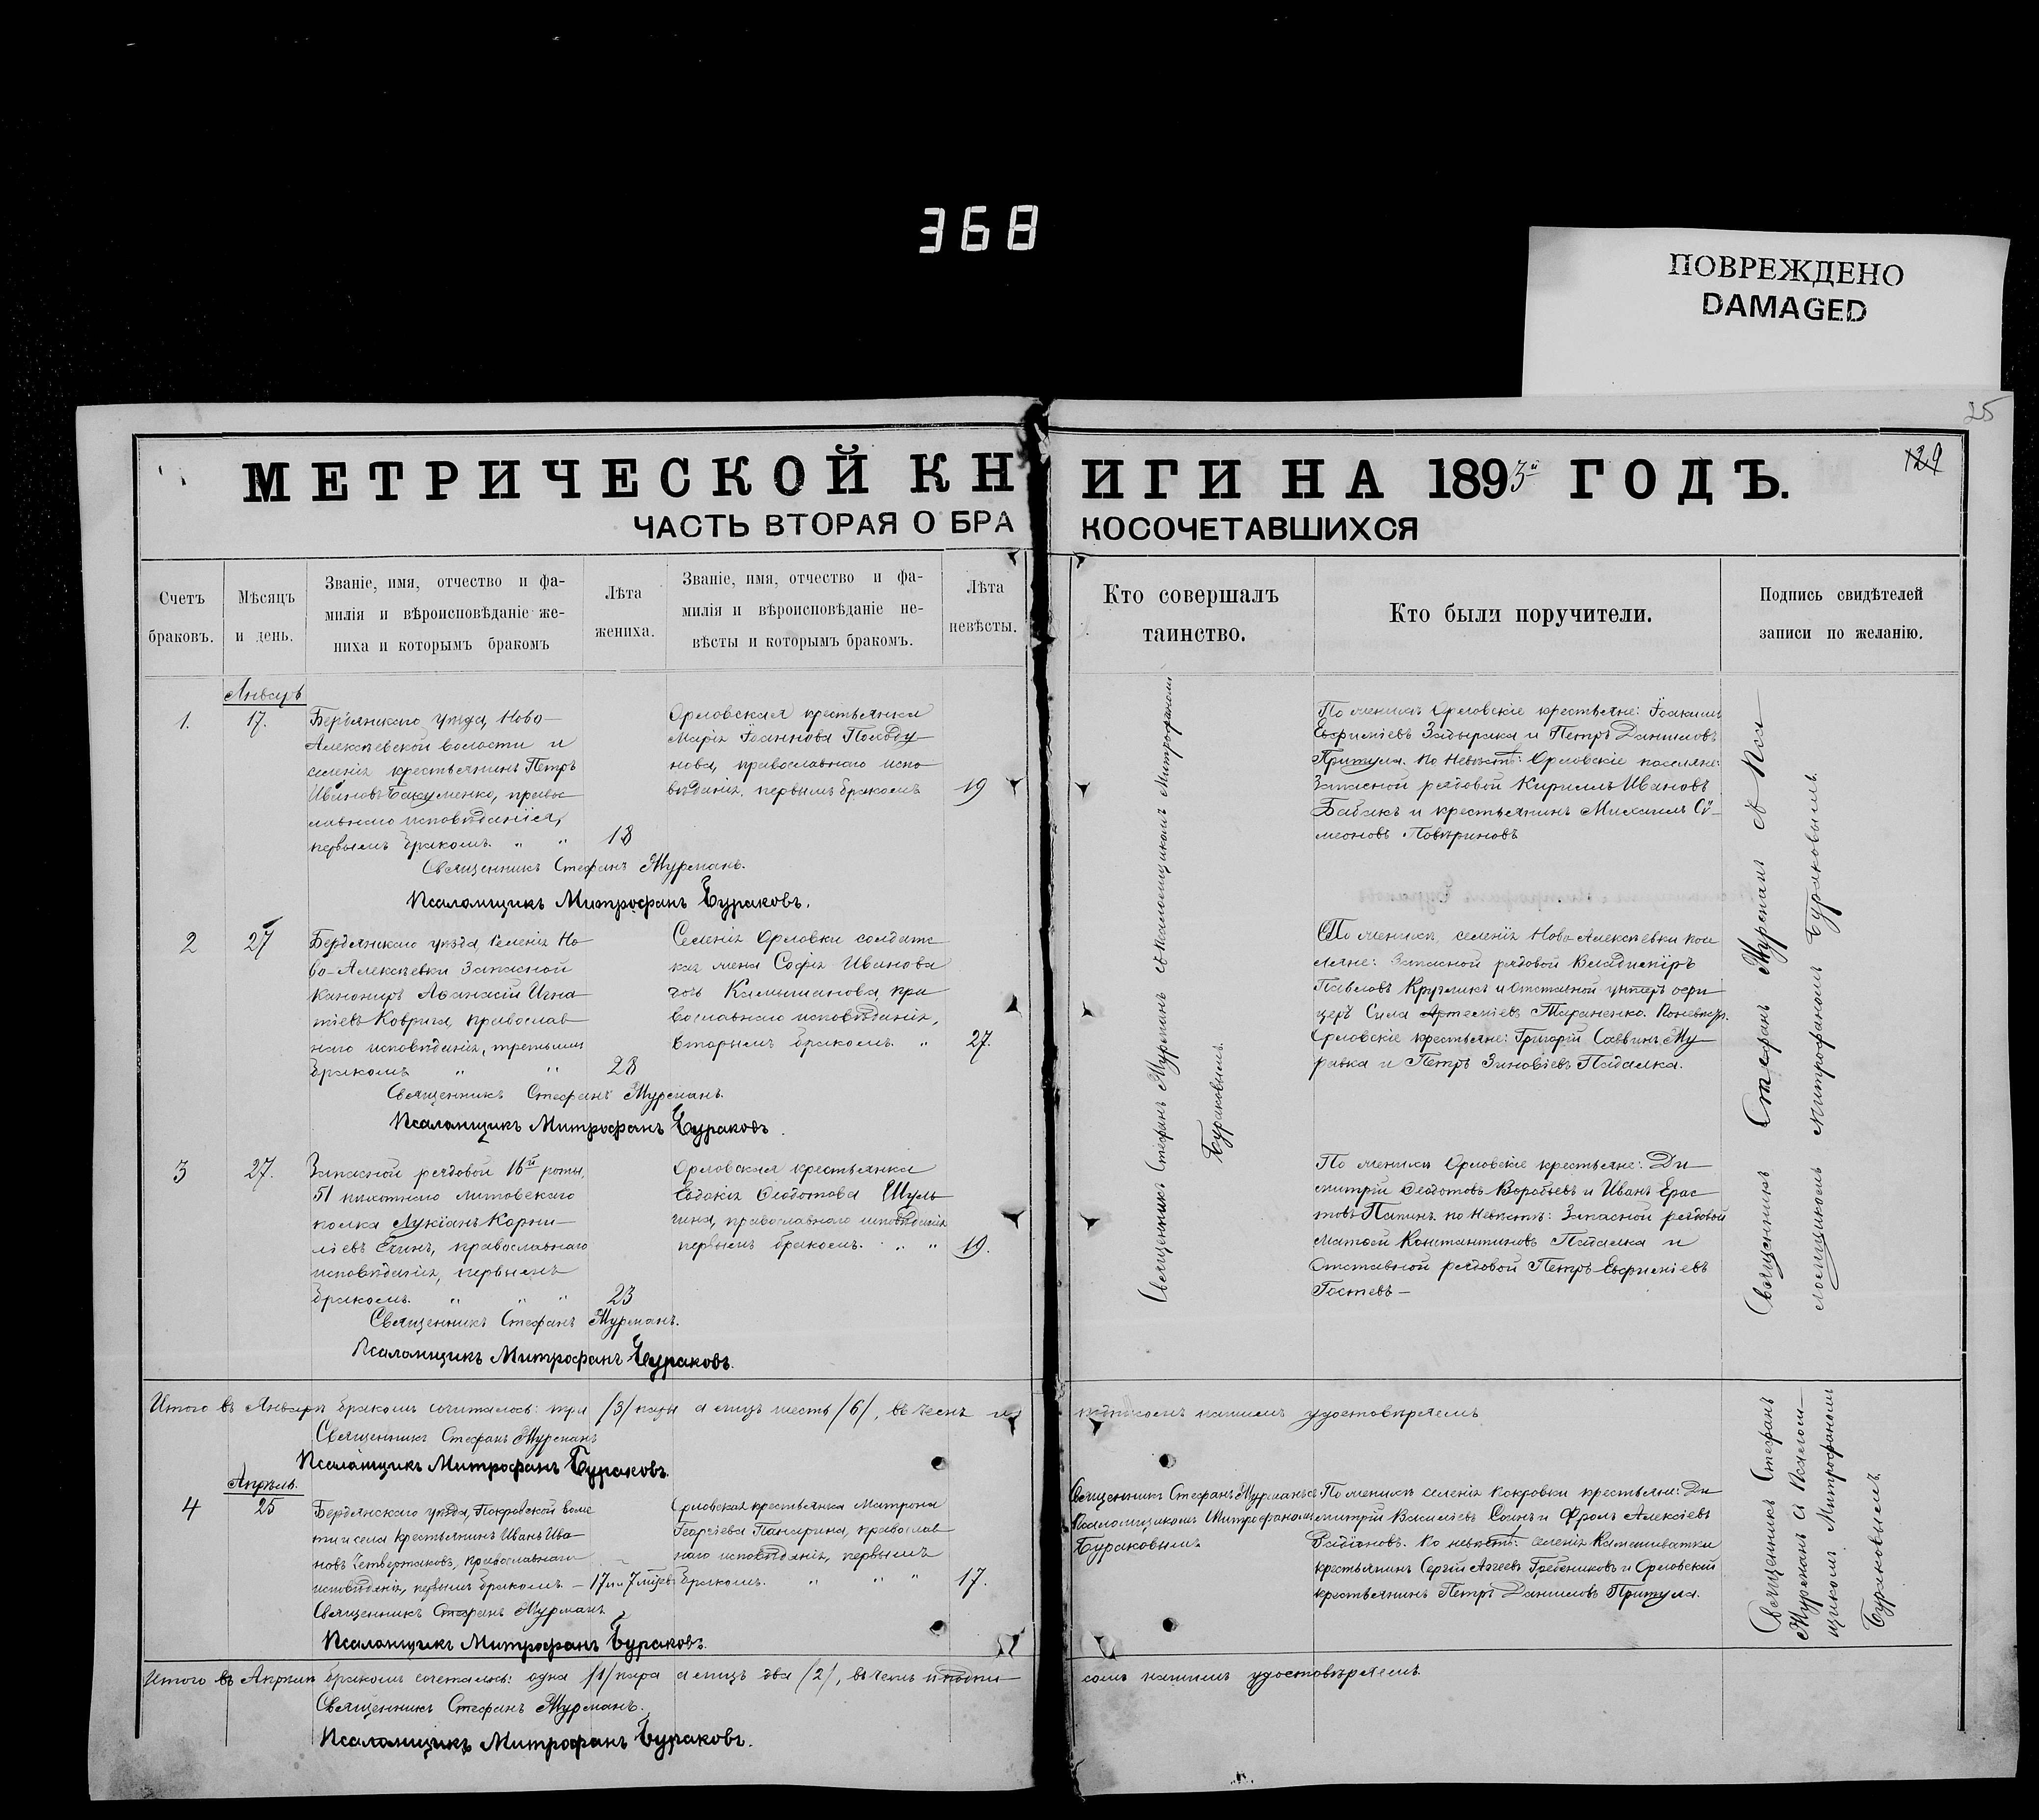 368
ПОВРЕЖДЕНО
DAMAGED
25
129
МЕТРИЧЕСКОЙ КНИГИ НА 1893й ГОДЪ.
ЧАСТЬ ВТОРАЯ О БРАКОСОЧЕТАВШИХСЯ
Счетъ
браковъ.
Мѣсяцъ
и день.
Званіе, имя, отчество и фа-
милія и вѣроисповѣданіе же-
ниха и которымъ бракомъ
Лѣта
жениха.
Званіе, имя, отчество и фа-
милія и вѣроисповѣданіе не-
вѣсты и которымъ бракомъ.
Лѣта
невѣсты.
Кто совершалъ
таинство.
Кто были поручители.
Подпись свидѣтелей
записи по желанію.
Январь
1.
17.
Бердянскаго уѣзда, Ново-
Алексѣевской волости и
селенія крестьянинъ Петръ
Ивановъ Бакуменко, правос
лавнаго исповѣданія,
первымъ бракомъ. " "
18
Орловская крестьянка
Марія Іоаннова
нова, православнаго испо
вѣданія, первымъ бракомъ
19
Священникъ Стефанъ Мурманъ.
Псаломщикъ Митрофанъ Бураковъ.
Священникъ Стефанъ Мурманъ съ псаломщикомъ Митрофаномъ
Бураковымъ.
По женихѣ Орловскіе крестьяне: Іоакимъ
Евфиміевъ Задырака и Петръ Даниловъ
Притула. по невѣстѣ: Орловскіе поселяне:
Запасной рядовой Кириллъ Ивановъ
Бабакъ и крестьянинъ Михаилъ Си-
меоновъ
Священникъ Стефанъ Мурманъ съ Пса
ломщикомъ Митрофаномъ Бураковымъ.
2
27
Бердянскаго уѣзда, селенія Но
во-Алексѣевки Запасной
Канониръ Аѳанасій Игна
тіевъ Коврига, православ
наго исповѣданія, третьимъ
бракомъ " "
28
Селенія Орловки солдатс
кая жена Софія Иванова
Камышанова, пра
вославнаго исповѣданія,
вторымъ бракомъ. "
27.
Священникъ Стефанъ Мурманъ.
Псаломщикъ Митрофанъ Бураковъ.
По женихѣ, селенія Ново-Алексѣевки посе
ляне: Запасной рядовой Владиміръ
Павловъ Кругликъ и Отставной унтеръ офи
церъ Сила Артеміевъ Тараненко. По невѣстѣ.
Орловскіе крестьяне: Григорій Саввинъ Му
равка и Петръ Зиновіевъ Падалка.
3
27.
Запасной рядовой 16й роты,
51 пѣхотнаго литовскаго
полка Лукіанъ Корни-
ліевъ Ечинъ, православнаго
исповѣданія, первымъ
бракомъ. " " "
23
Орловская крестьянка
Евдокія Ѳеодотова Шуль
гина, православнаго исповѣданія
первымъ бракомъ. " "
19.
Священникъ Стефанъ Мурманъ.
Псаломщикъ Митрофанъ Бураковъ.
По женихѣ Орловскіе крестьяне: Ди
митрій Ѳеодотовъ Воробьевъ и Иванъ Ерас
товъ Папинъ. по невѣстѣ: Запасной рядовой
Матѳей Константиновъ Падалка и
Отставной рядовой Петръ Евфиміевъ
Гостевъ-
Итого въ Январѣ бракомъ сочеталось: три /3/ пары а лицъ шесть /6/, въ чемъ и подписомъ нашимъ удостовѣряемъ
Священникъ Стефанъ Мурманъ
Псаломщикъ Митрофанъ Бураковъ.
Апрѣль.
4
25
Бердянскаго уѣзда, Покровской волос
ти и села крестьянинъ Иванъ Ива
новъ Четвертаковъ, православнаго
исповѣданія, первымъ бракомъ. -
17 и 7 мѣсяц.
Орловская крестьянка Матрона
Георгіева Панарина, православ
наго исповѣданія, первымъ
бракомъ. " " "
17.
Священникъ Стефанъ Мурманъ
Псаломщикъ Митрофанъ Бураковъ.
Священникъ Стефанъ Мурманъ съ
Псаломщикомъ Митрофаномъ
Бураковымъ
По женихѣ селенія Покровки крестьяне: Ди
митрій Василіевъ Соинъ и Фролъ Алексіевъ
Радіоновъ. По невѣстѣ: селенія
крестьянинъ Сергій Аггеевъ Гребениковъ и Орловскій
крестьянинъ Петръ Даниловъ Притула.
Священникъ Стефанъ
Мурманъ съ Псалом
щикомъ Митрофаномъ
Бураковымъ
Итого въ Апрѣлѣ бракомъ сочеталось: одна /1/ пара а лицъ два /2/, въ чемъ и подписомъ нашимъ удостовѣряемъ
Священникъ Стефанъ Мурманъ.
Псаломщикъ Митрофанъ Бураковъ.